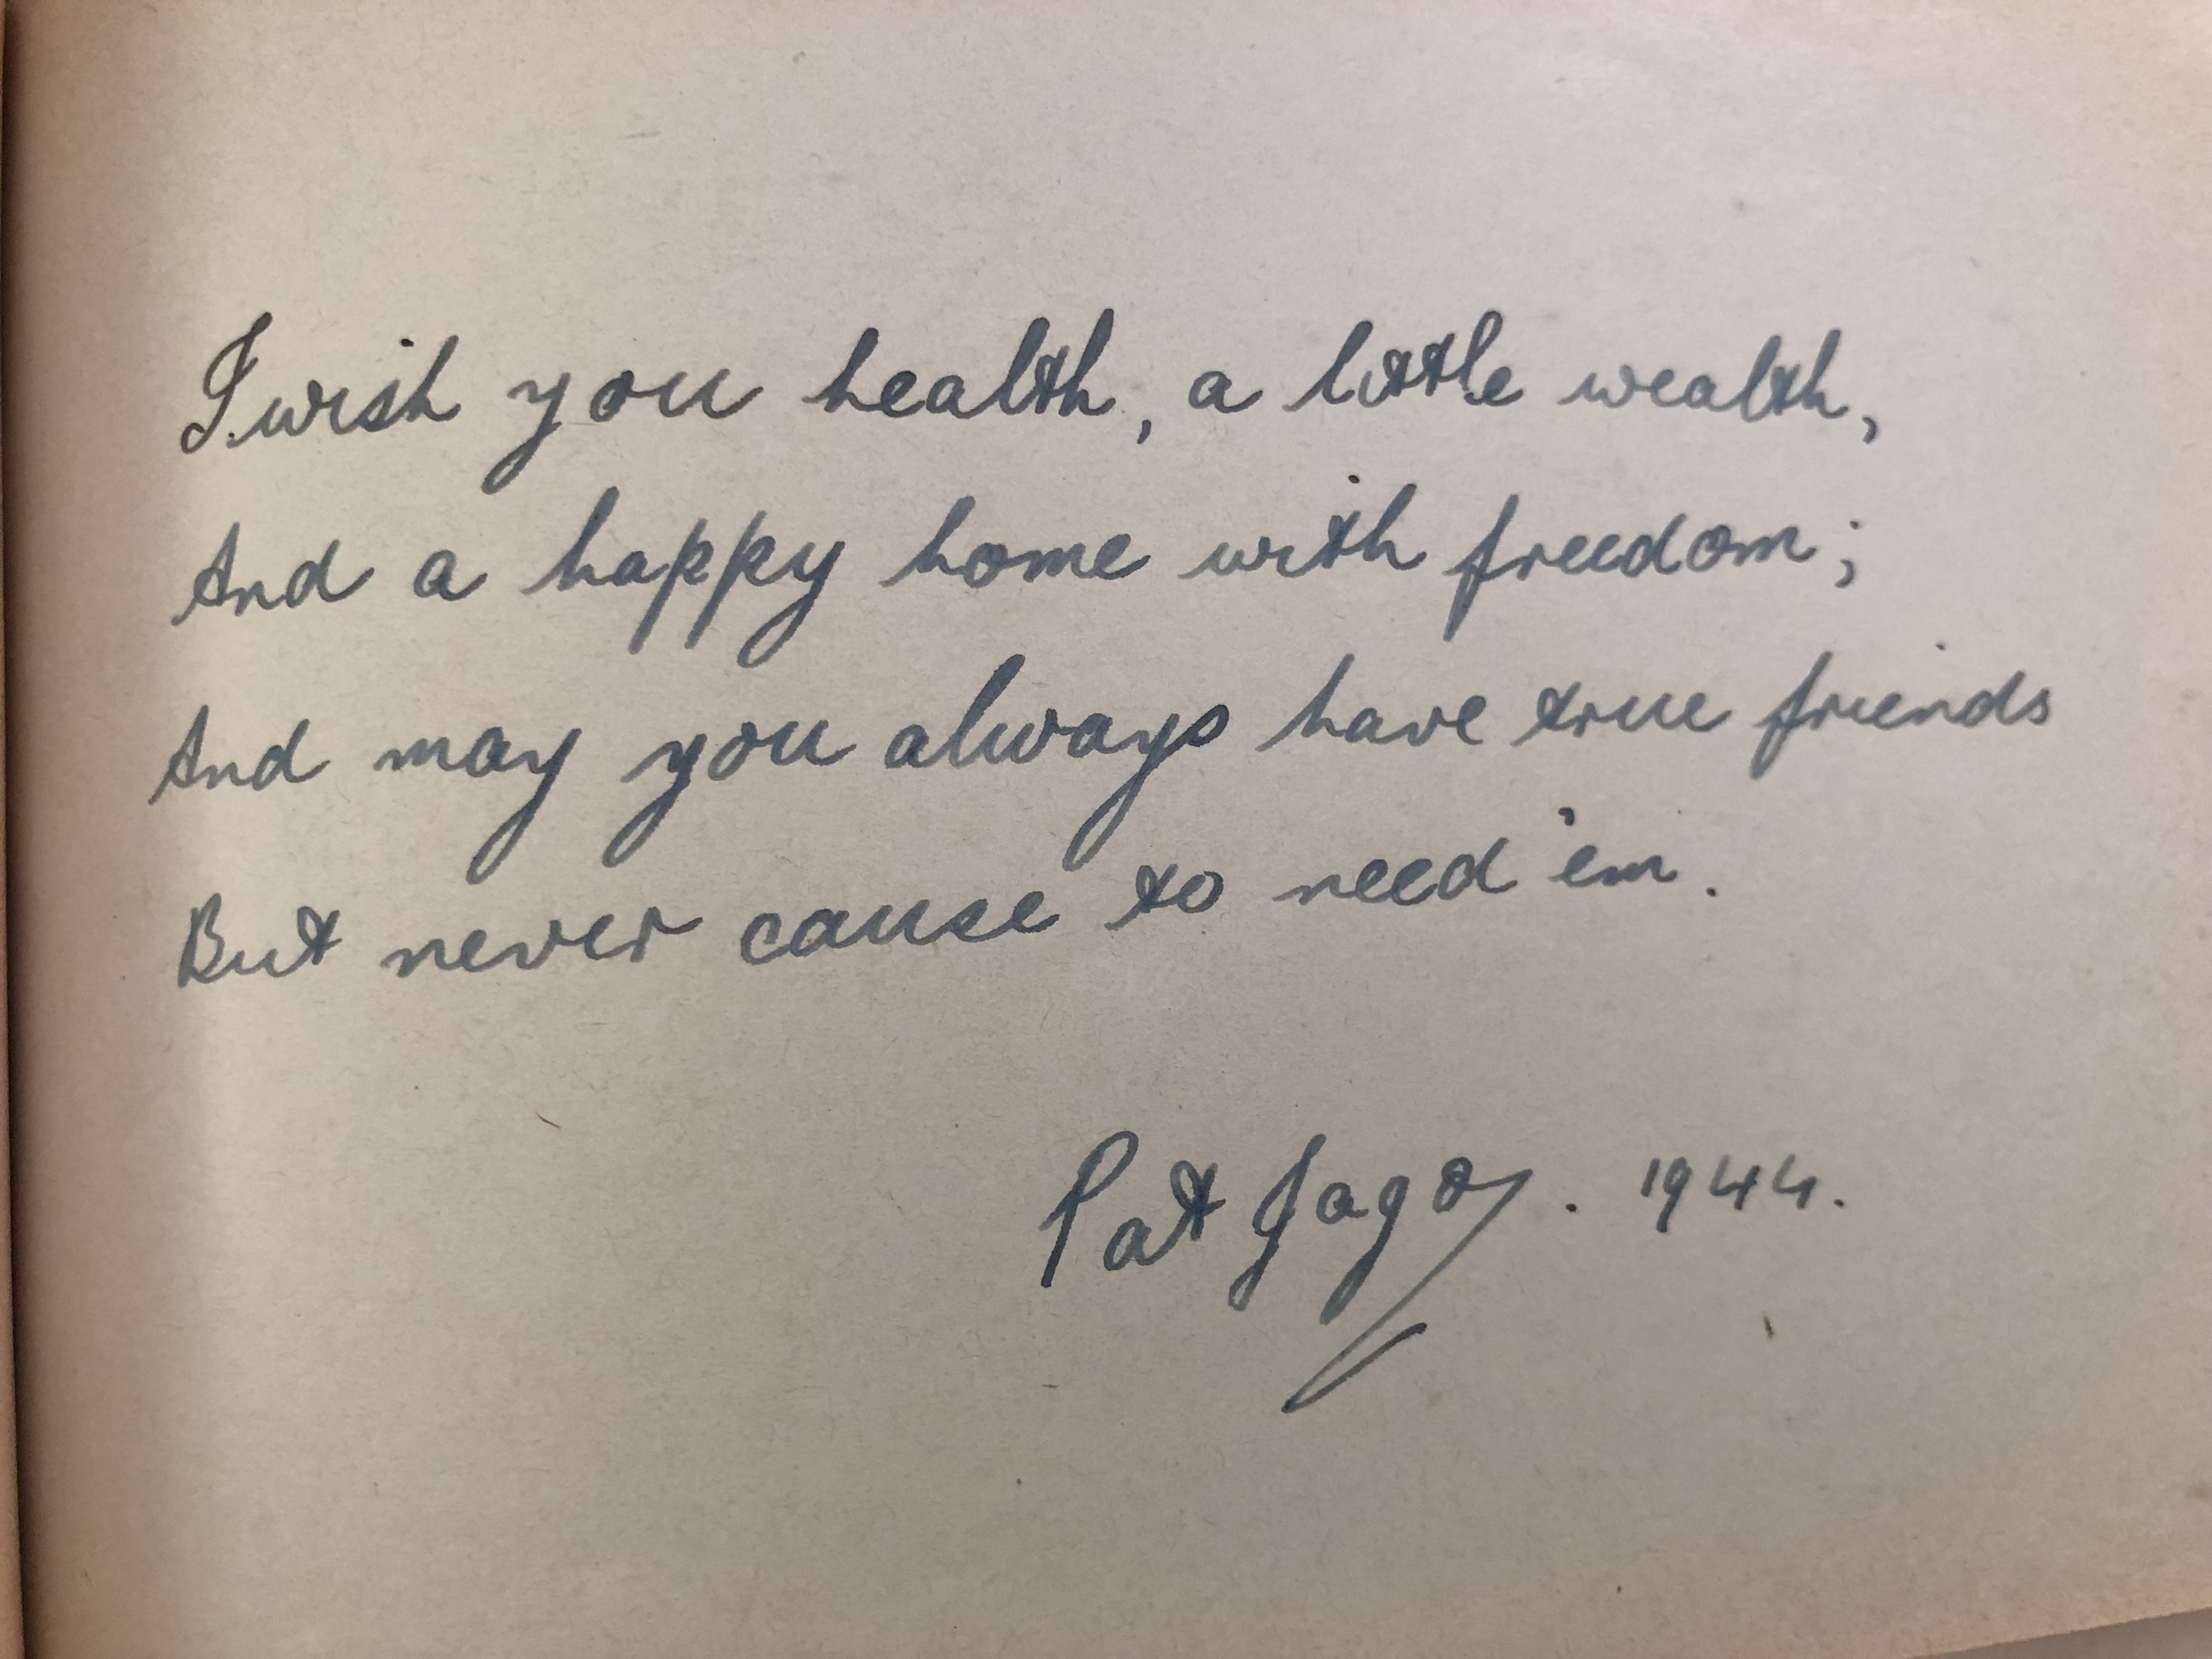 I wish you health, a little wealth,
And a happy home with freedom;
And may you always have true friends
But never cause to need 'em.
Pat Jago. 1944.